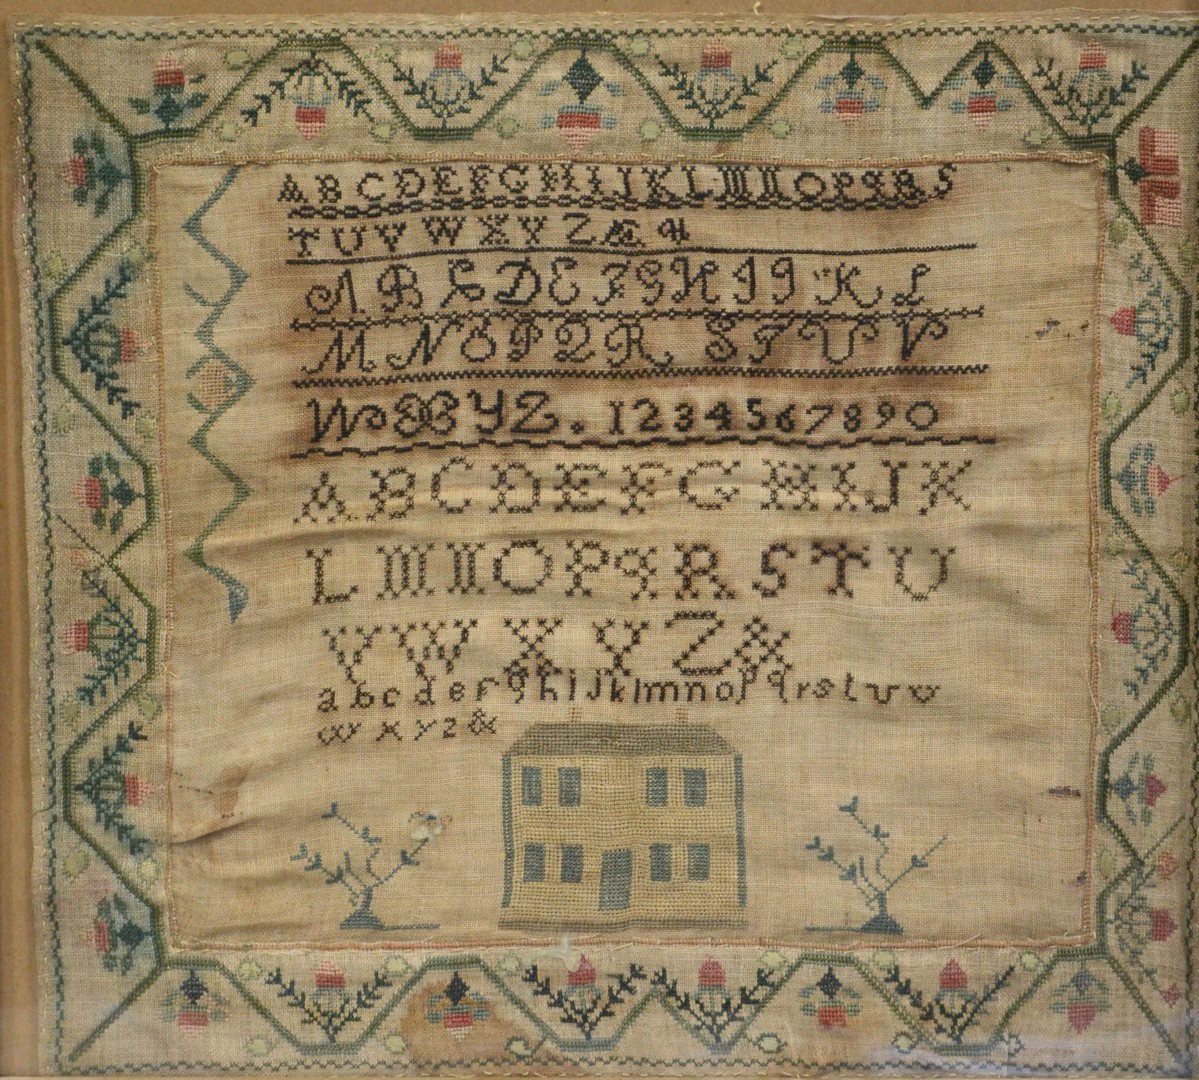 A B C D E F G H I J K L M N O P Q R S
T U V W X Y Z Æ &
A B C D E F G H I J K L
M N O P Q R S T U V
W X Y Z . 1 2 3 4 5 6 7 8 9 0
A B C D E F G H I J K
L M N O P Q R S T U
V W X Y Z &
a b c d e f g h i j k l m n o p q r s t u v
w x y z &